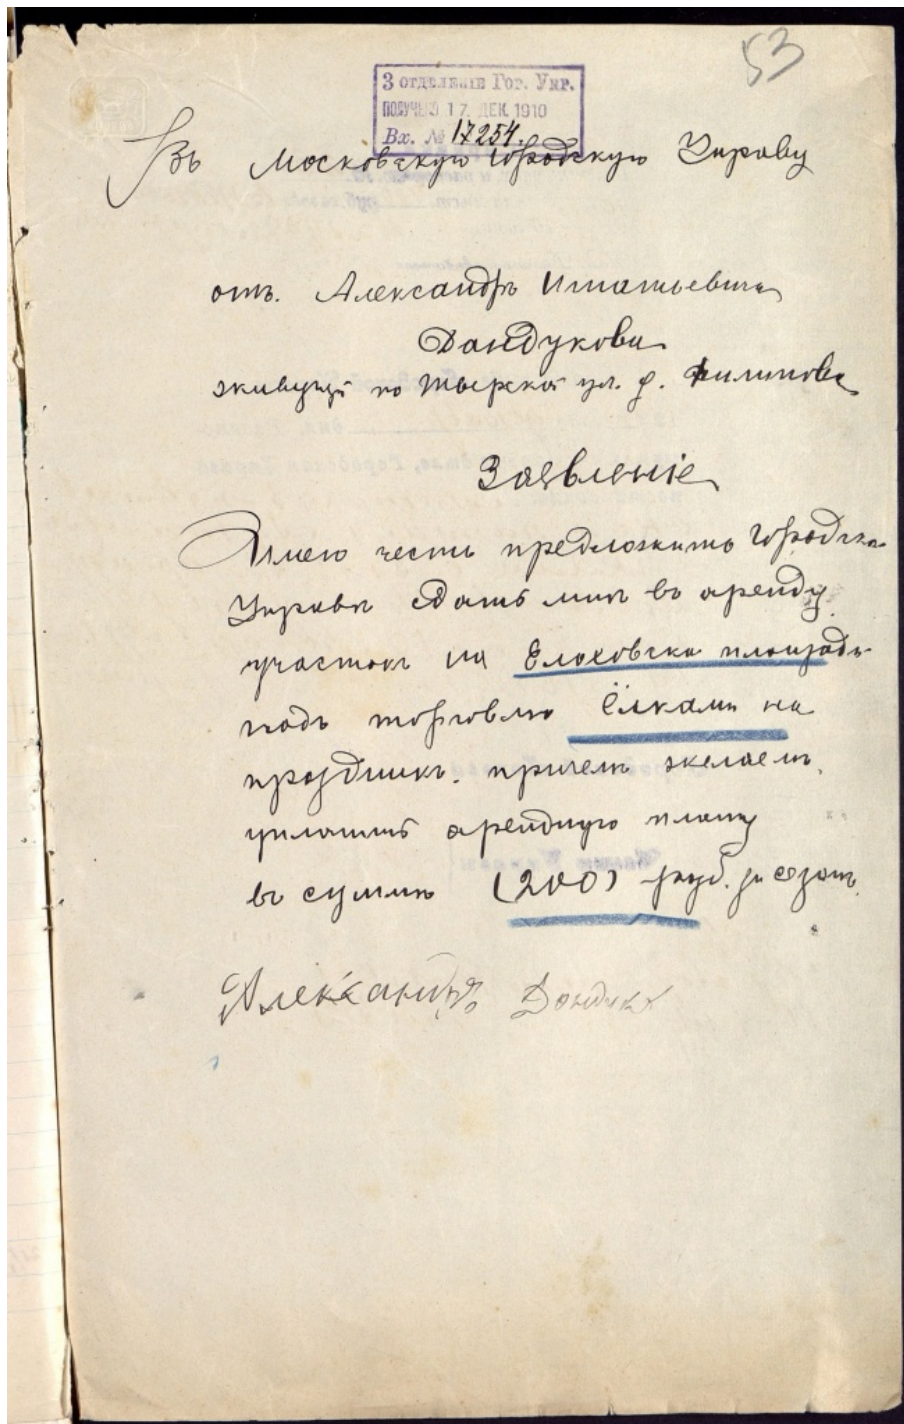 53
3 отдѣленіе Гор. Упр.
получено 17. ДЕК. 1910
Вх. № 17254.
Въ Московскую Городскую Управу
отъ. Александръ Игнатьевича
Дандукова
живущій по Тверской ул. д. Филипова
Заявленіе
Имею честь предложить Городско
Управѣ сдать мнѣ въ аренду
участокъ на Елоховско площадь
подъ торговлю ёлками на
праздникъ. причемъ желаемъ
уплатить арендную плату
въ суммѣ (200) руб. за сезонъ.
Александръ Дондуков